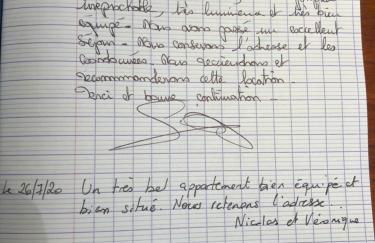 irréprochable, très lumineux et très bien
équipé - Nous avons passé un excellent
Séjour - Nous conservons l'adresse et les
coordonnées. Nous reviendrons et
recommanderons cette location.
Merci et bonne continuation -
le 26/7/20 Un très bel appartement bien équipé et
bien situé. Nous retenons l'adresse...
Nicolas et Véronique